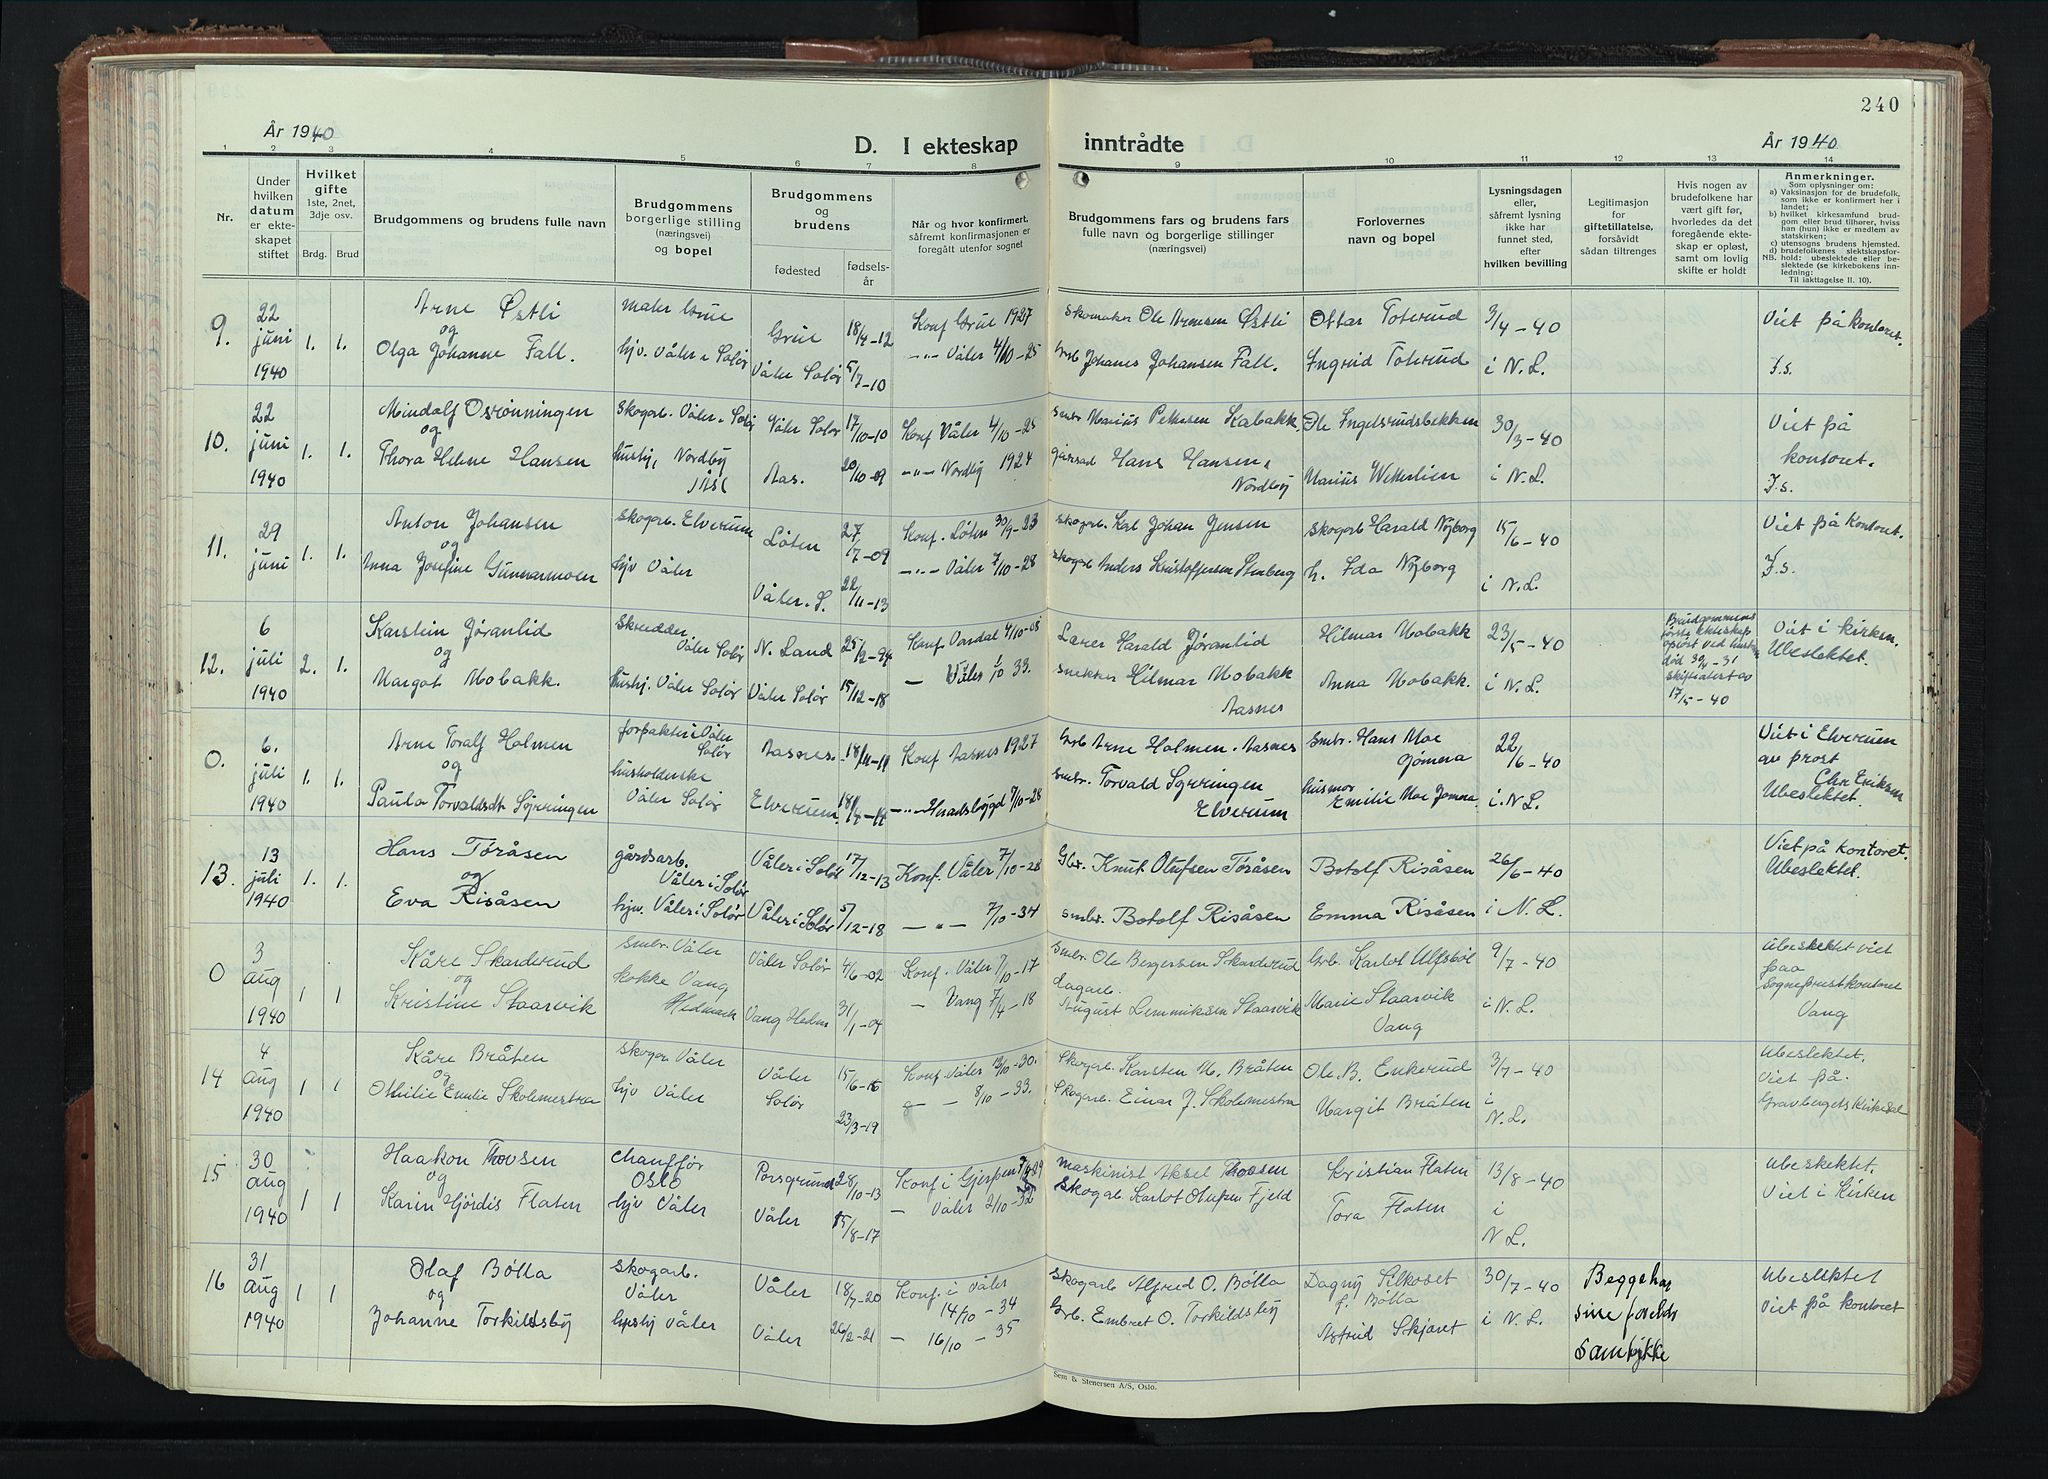 240
År 1940
D. I ekteskap
inntrådte
År 1940
1 2 3 4 5 6 7 8 9 10 11 12 13 14
Nr.
Under
hvilken
datum
er ekte-
skapet
stiftet
Hvilket
gifte
1ste, 2net,
3dje osv.
Brdg. Brud
Brudgommens og brudens fulle navn
Brudgommens
borgerlige stilling
(næringsvei)
og bopel
Brudgommens
og
brudens
fødested
fødsels-
år
Når og hvor konfirmert,
såfremt konfirmasjonen er
foregått utenfor sognet
Brudgommens fars og brudens fars
fulle navn og borgerlige stillinger
(næringsvei)
Forlovernes
navn og bopel
Lysningsdagen
eller,
såfremt lysning
ikke har
funnet sted,
efter
hvilken bevilling
Legitimasjon
for
giftetillatelse,
forsåvidt
sådan tiltrenges
Hvis nogen av
brudefolkene har
vært gift før,
hvorledes da det
foregående ekte-
skap er opløst,
samt om lovlig
skifte er holdt
Anmerkninger.
Som oplysninger om:
a) Vaksinasjon for de brudefolk,
som ikke er konfirmert her i
landet;
b) hvilket kirkesamfund brud-
gom eller brud tilhører, hviss
han (hun) ikke er medlem av
statskirken;
c) utensogns brudens hjemsted.
d) brudefolkenes slektskapsfor-
NB. hold: ubeslektede eller be-
slektede (se kirkebokens inn-
ledning:
Til iakttagelse II. 10).
9. 22 juni 1940 1. 1.
Arne Østli
og
Olga Johanne Fall.
maler Grue
hjv. Våler i Solør
Grue 18/4-12
Våler Solør 5/7-10
Konf Grue 1927
-"- Våler 4/10-25
Skomaker Ole Arnesen Østli
Grb Johanes Johansen Fall.
Ottar Toterud
Ingrid Toterud
3/4-40
i N. L.
Viet på kontoret.
I.s.
10. 22 juni 1940 1. 1.
Mindalf Osrønningen
og
Thora Helene Hansen
Skogarb. Våler i Solør
hushj, Nordby
i Ås
Våler Solør 17/10-10
Aas. 20/10-09
Konf Våler 4/10-25
-"- Nordby 1924
Smbr Marius Pettersen Kabakk.
Hans Hansen,
Nordby
Ole Ingelsrudsbekken
Marius Wetterlien
30/3-40
i N.L.
Viet på
kontoret.
I.s.
11. 29 juni 1. 1.
Anton Johansen
og
Anna Josefine Gunnarmoen
Skogarb. Elverum
hjv Våler
Løten 27/7-09
Våler. S. 22/11-13
Konf. Løten 30/9-23
-"- Våler 7/10-28
Skogarb. Karl Johan Jensen
Skogarb Anders Kristoffersen Stenberg
Skogarb Harald Nyborg
h. Ida Nyborg
15/6-40
i N.L.
Viet på kontoret.
I.s.
12. 6 juli 1940 2. 1.
Karstein Jøranlid
og
Margot Mobakk.
Skredder
Våler Solør
hushj. Våler Solør
N. Land 25/2-94
Våler Solør 15/12-18
Konf. Vardal 4/10-08
- Våler 1/10 33.
Lærer Harald Jøranlid
Snekker Hilmar Mobakk
Aasnes
Hilmar Mobakk
Anna Mobakk.
23/5-40
i N.L.
Brudgommens
første ekteskap
opløst ved hustr
død 30/4-31
Skifteattest av
17/5-40
Viet i kirken.
Ubeslektet.
0. 6. juli 1940 1. 1.
Arne Toralf Holmen
og
Paula Torvaldsdt Syrringen
forpakter i Våler
Solør
husholderske
Våler Solør
Aasnes. 18/11-11
Elverum. 18/4-14
Konf Aasnes 1927
-"- Heradsbygd 7/10-28
Grb Arne Holmen. Aasnes
Smbr. Torvald Syrringen
Elverum
Smbr. Hans Moe
Jømna
husmor
Emilie Moe Jømna.
22/6-40
i. N L.
Viet i Elverum
av prost
Chr Eriksen
Ubeslektet.
13. 13 juli 1940 1. 1.
Hans Tøråsen
og
Eva Risåsen
gårdsarb.
Våler i Solør
hjv. Våler i Solør
Våler i Solør 17/12-13
Våler i Solør 5/12-18
Konf. Våler 7/10-28
-"- 7/10-34
Gbr. Knut Olufsen Tøråsen
Smbr. Botolf Risåsen
Botolf Risåsen
Emma Risåsen
26/6-40
i N. L.
Viet på kontoret.
Ubeslektet.
0 3 aug 1940 1 1
Kåre Skarderud
og
Kristine Staarvik
Smbr. Våler
kokke Vang
Hedmark
Våler Solør 4/6-02
Vang Hedm 31/1-04
Konf. Våler 7/10-17
- Vang 7/4-18
Smbr. Ole Bergersen Skarderud
dagarb.
August Lemmiksen Staarvik
Grb. Karlot Ulfsbøl
Marie Staarvik
Vang
9/7-40
i N.L.
Ubeslektet viet
paa
Sogneprestkontoret
Vang
14 4 aug 1940 1 1
Kåre Bråten
og
Othilie Emilie Skolemestra
Skogar Våler
hjv Våler
Våler 15/6-16
Solør 23/3-19
Konf. Våler 12/10-30.
- 8/10-33.
Skogarb. Karsten M. Bråten
Skogarb. Einar J. Skolemestra
Ole B. Enkerud
Margit Bråten
3/7-40
i
N.L.
Ubeslektet.
Viet på.
Gravbergets Kirke
15 30 aug 1940 1 1
Haakon Thovsen
og
Karin Hjördis Flaten
Chauffør
OSLO
hjv Våler
Porsgrund 28/10-13
Våler 15/8-17
Konf i Gjerpen
- Våler 2/10-32
Maskinist Aksel Thovsen
Skogarb Karlot Olufsen Fjeld
Kristian Flaten
Tora Flaten
13/8-40
i
N L.
Ubeslektet.
Viet i Kirken
16 31 aug 1940 1 1
Olaf Bølla
og
Johanne Torkildsby
Skogarb.
Våler
hushj Våler
Våler 18/7-20
Våler 26/2-21
Konf. i Våler
14/10-34
- 16/10-35
Skogarb Alfred O. Bølla
Grb. Embret O. Torkildsby
Dagny Silkoset
f. Bølla
Astrid Skjøret
30/7-40
i N. L.
Begge har
sine foreldr
Samtykke
Ubeslektet
Viet på kontoret
Sem & Stenersen A/S, Oslo.